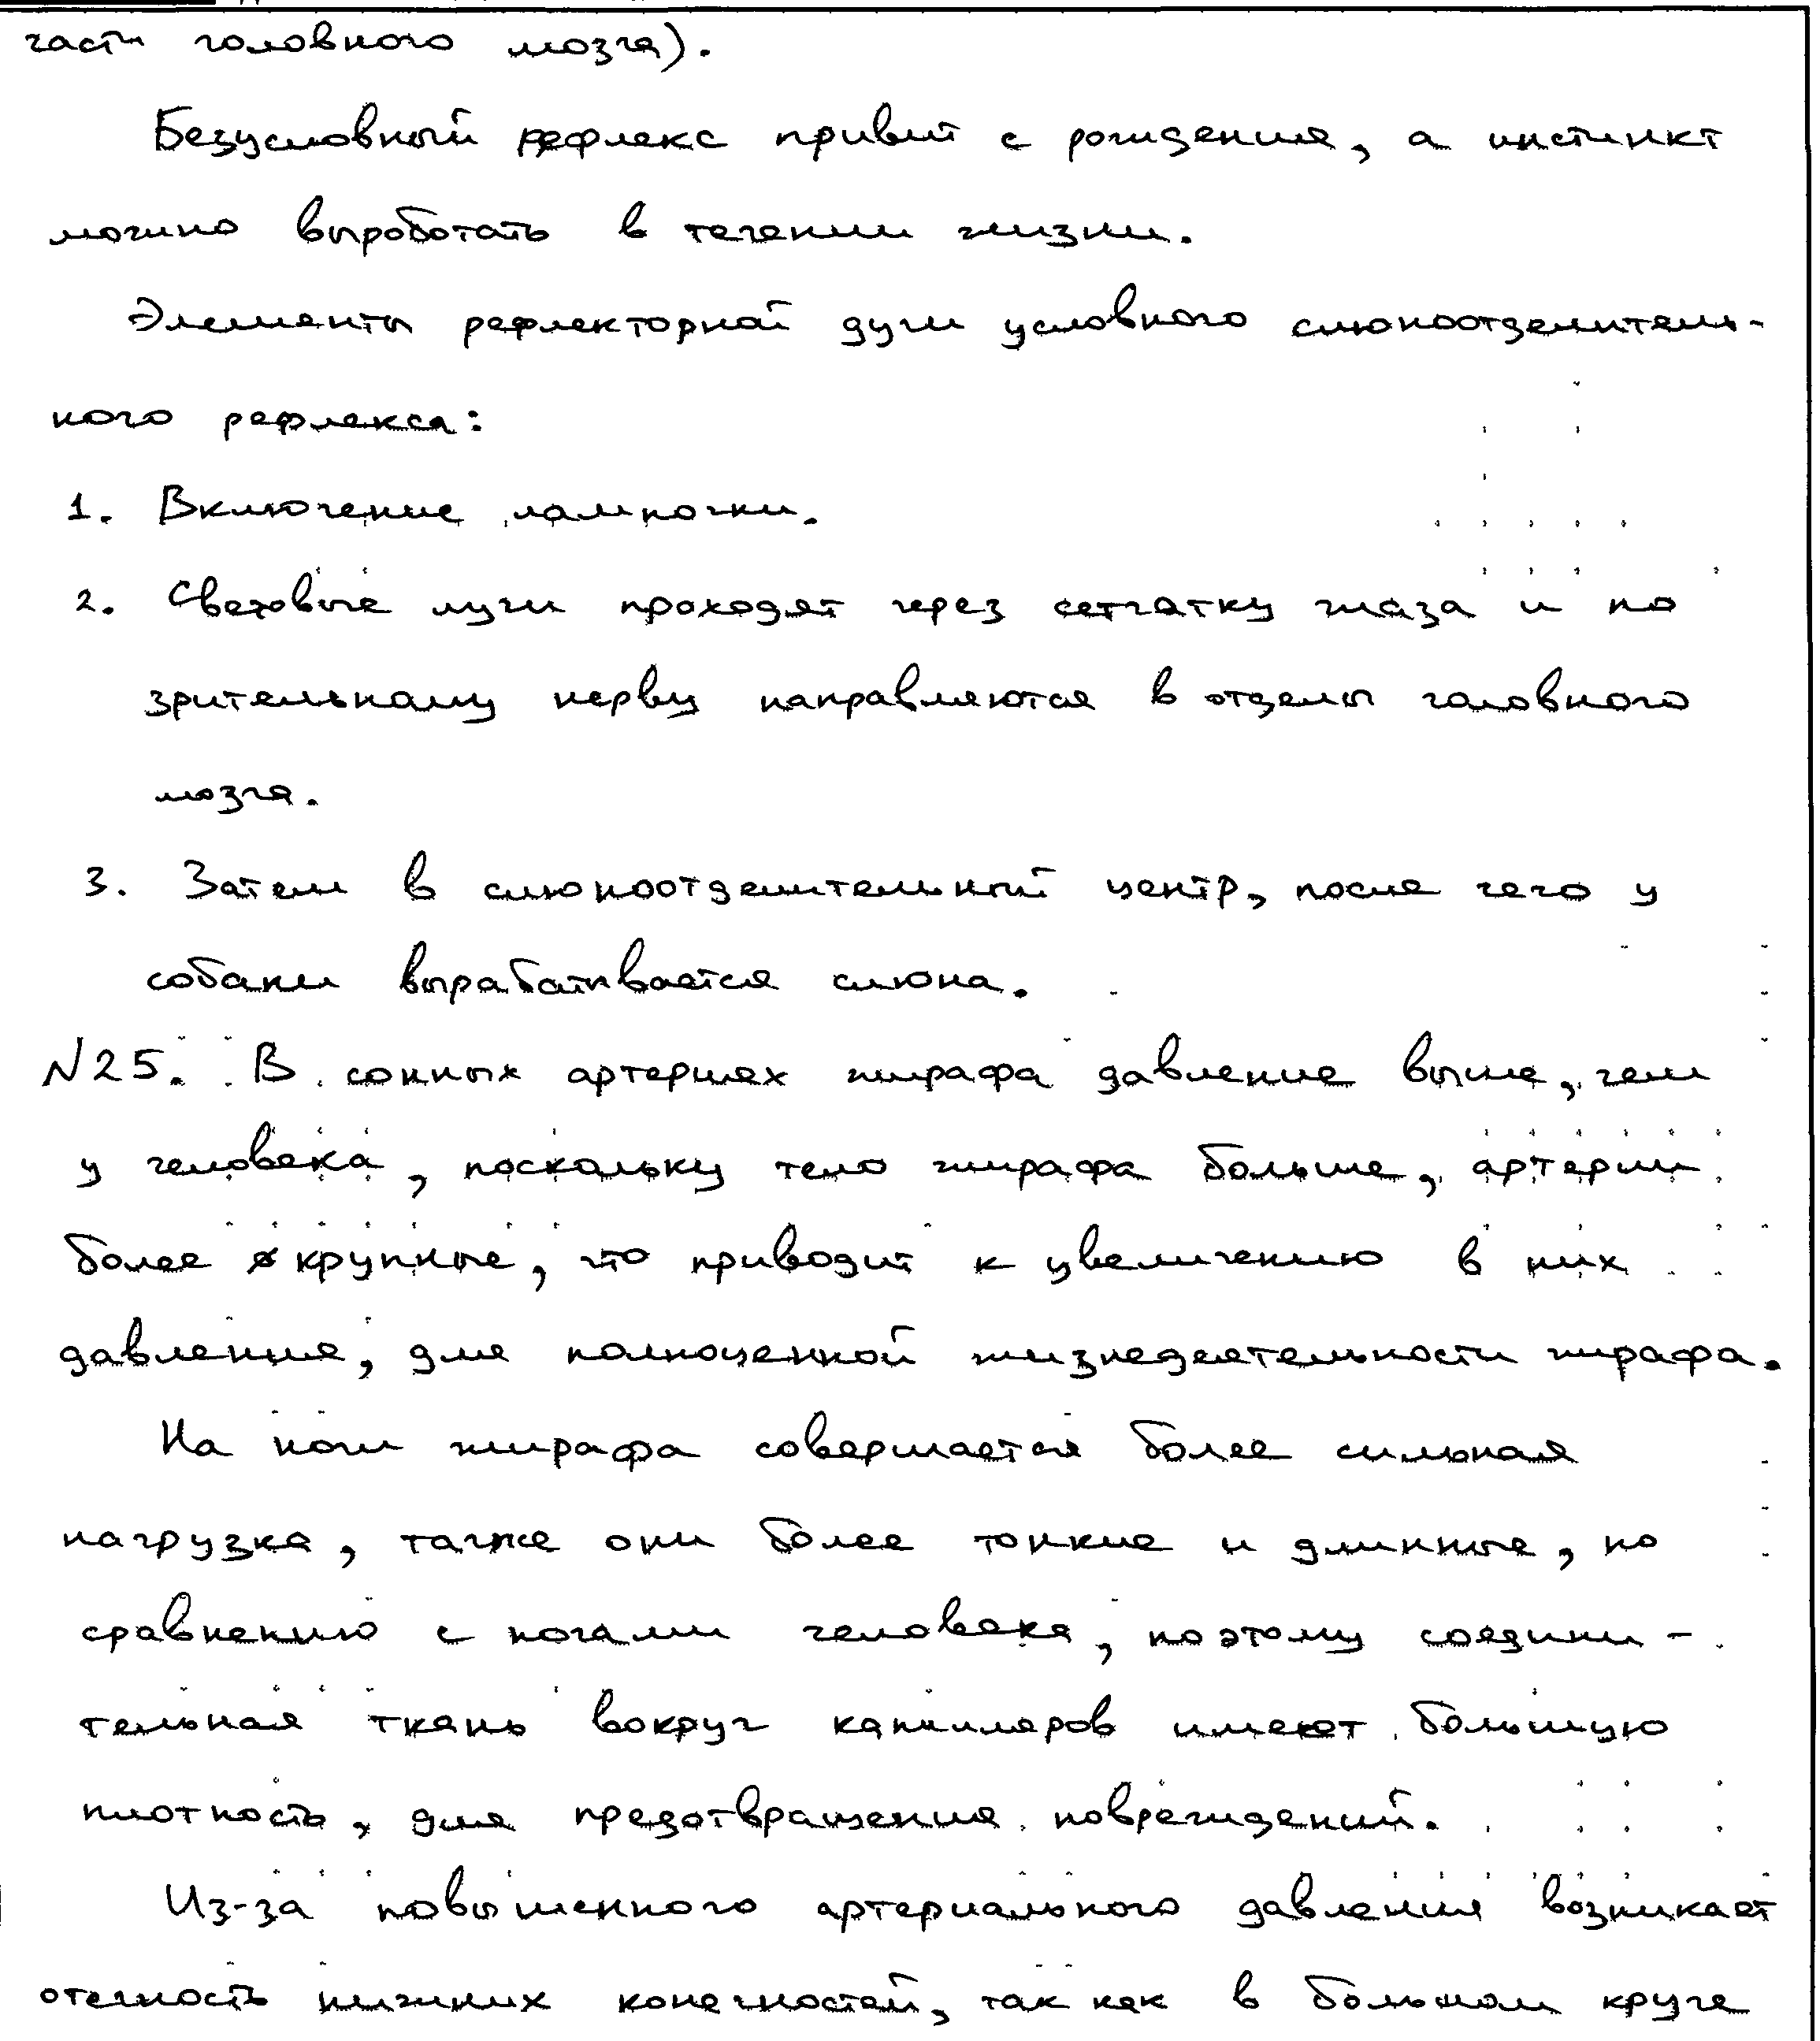 части головного мозга).
Безусловный рефлекс привит с рождения, а инстинкт
можно выроботать в течении жизни.
Элементы рефлекторной дуги условного слюноотделитель-
ного рефлекса:
1. Включение лампочки.
2. Световые лучи проходят через сетчатку глаза и по
зрительному нерву направляются в отделы головного
мозга.
3. Затем в слюноотделительный центр, после чего у
собаки вырабатывается слюна.
N25. В сонных артериях жирафа давление выше, чем
у человека, поскольку тело жирафа больше, артерии
более крупные, что приводит к увеличению в них
давления, для полноценной жизнедеятельности жирафа.
На ноги жирафа совершается более сильная
нагрузка, также они более тонкие и длинные, по
сравнению с ногами человека, поэтому соедини-
тельная ткань вокруг капилляров имеют большую
плотность, для предотвращения повреждений.
Из-за повышенного артериального давления возникает
отечность нижних конечностей, так как в большом круге